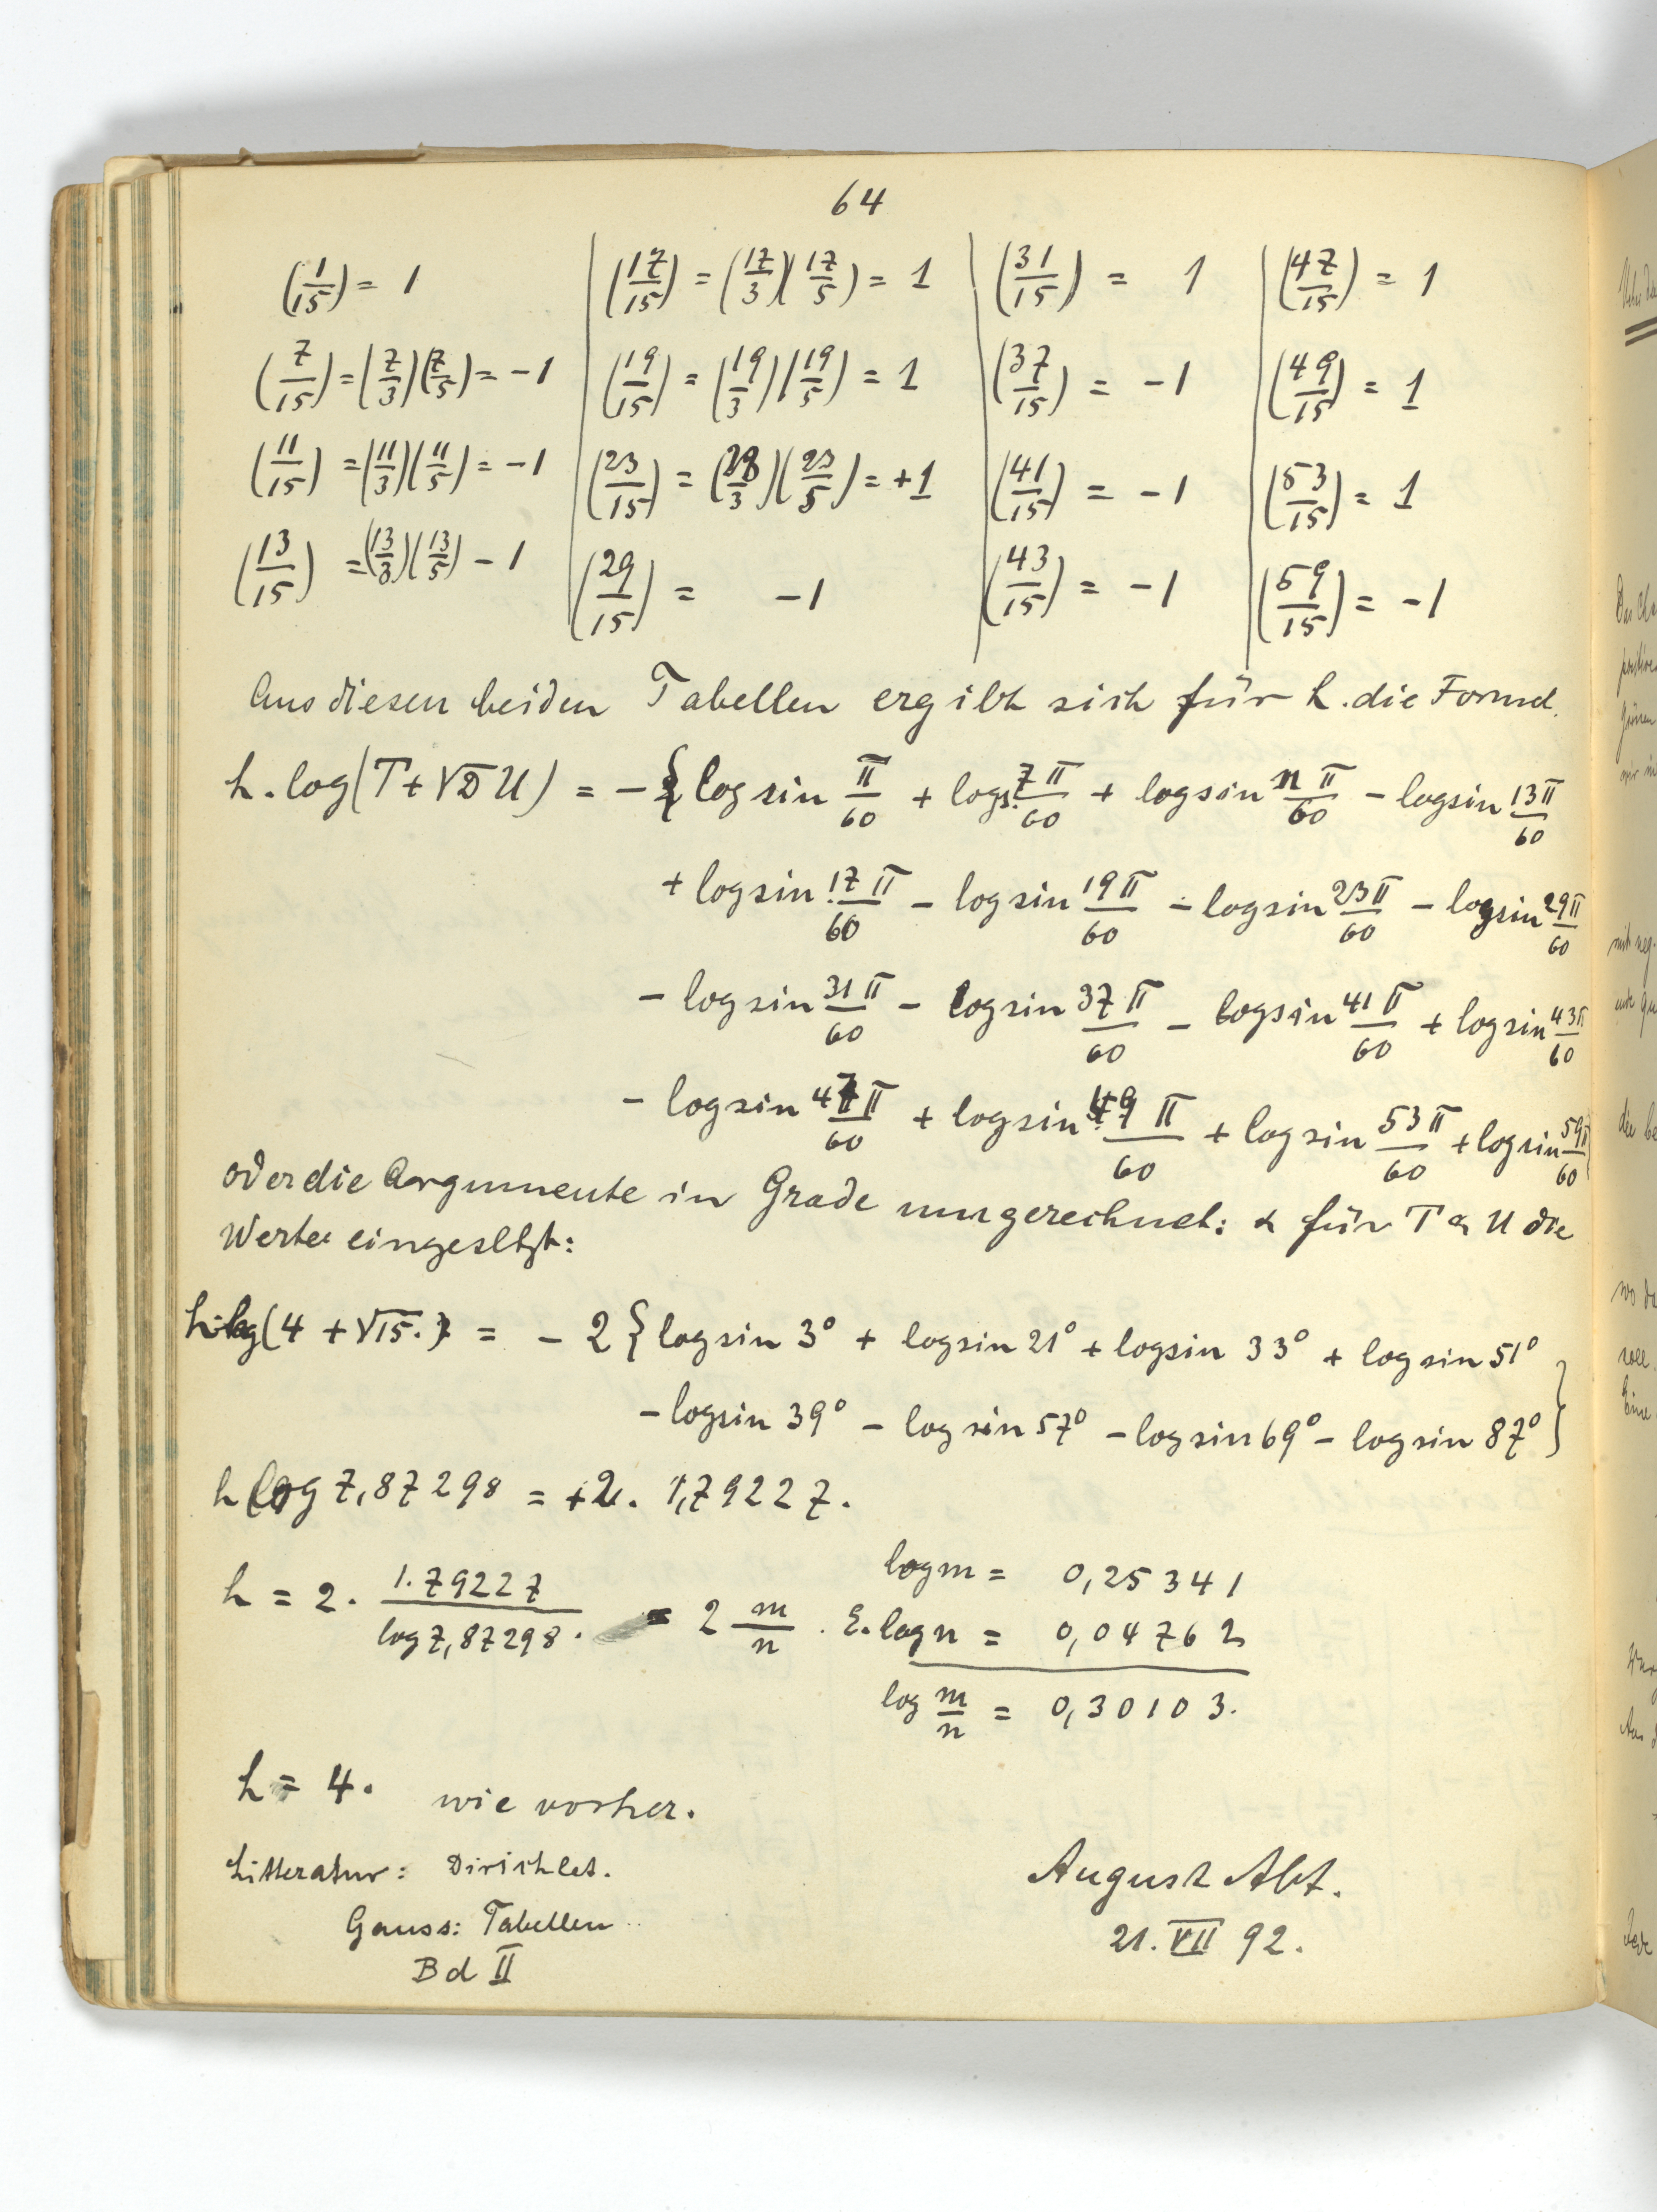 64
(1/15) = 1 | (17/15) = (17/3)(17/5) = 1 | (31/15) = 1 | (47/15) = 1
(7/15) = (7/3)(7/5) = -1 | (19/15) = (19/3)(19/5) = 1 | (37/15) = -1 | (49/15) = 1
(11/15) = (11/3)(11/5) = -1 | (23/15) = (23/3)(23/5) = +1 | (41/15) = -1 | (53/15) = 1
(13/15) = (13/3)(13/5) - 1 | (29/15) = -1 | (43/15) = -1 | (59/15) = -1
Aus diesen beiden Tabellen ergibt sich für h. die Formel.
h. log(T + √D U) = -{log sin π/60 + log s. 7π/60 + log sin 11π/60 - log sin 13π/60
+ log sin 17π/60 - log sin 19π/60 - log sin 23π/60 - log sin 29π/60
- log sin 31π/60 - log sin 37π/60 - log sin 41π/60 + log sin 43π/60
- log sin 47π/60 + log sin 49π/60 + log sin 53π/60 + log sin 59π/60
oder die Argumente in Grade umgerechnet: & für T & U die
Werte eingesetzt:
h·log(4 + √15.) = - 2 {log sin 3° + log sin 21° + log sin 33° + log sin 51°
- log sin 39° - log sin 57° - log sin 69° - log sin 87°}
h log 7,87298 = +2. 1,79227.
h = 2. 1.79227/log 7,87298. = 2 m/n . log m = 0,25341
E. log n = 0,04762
log m/n = 0,30103.
h = 4. wie vorher.
Litteratur: Dirichlet.
Gauss: Tabellen
Bd II
August Abt.
21. VII 92.